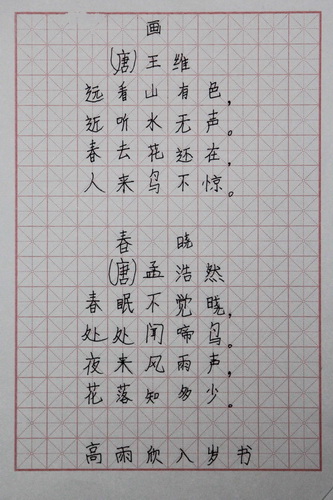 画
(唐)王维
远看山有色，
近听水无声。
春去花还在，
人来鸟不惊。
春晓
(唐)孟浩然
春眠不觉晓，
处处闻啼鸟。
夜来风雨声，
花落知多少。
高雨欣入岁书